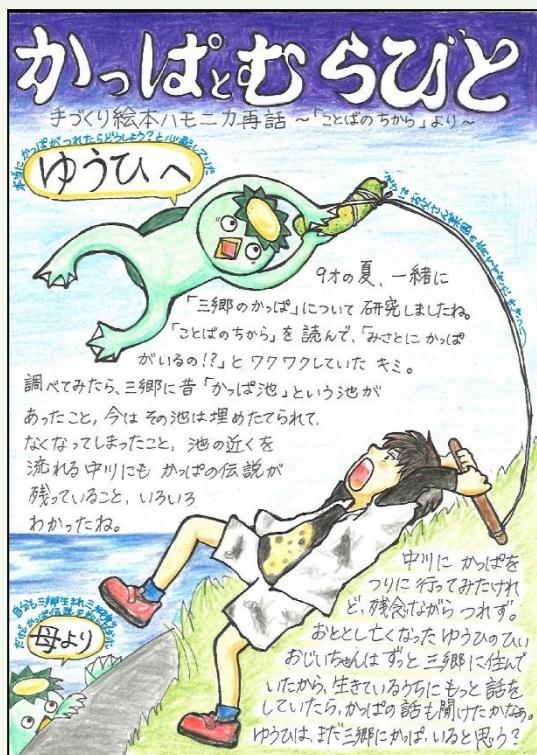 かっぱとむらびと
手づくり絵本ハモニカ再話 ~「ことばの ちから」より~
本当にかっぱがつれたらどうしよう?と心配していた
ゆうひへ
9才の夏、一緒に
「三郷のかっぱ」について 研究しましたね。
「ことばのちから」を 読んで、「みさとに かっぱ
がいるの!?」と ワクワクしていた キミ。
調べてみたら、三郷に昔「かっぱ池」という池が
あったこと、今は その池は 埋めたてられて、
なくなってしまったこと、池の近くを
流れる 中川にも かっぱの伝説が
残っていること、いろいろ
わかったね。
中川に かっぱを
つりに 行ってみたけれ
ど、残念ながら つれず。
おととし亡くなった ゆうひのひい
おじいちゃんは ずっと 三郷に住んで
いたから、生きているうちに もっと 話を
していたら、かっぱの話も聞けたかなぁ。
ゆうひは、まだ三郷に かっぱ、いると 思う?
母より